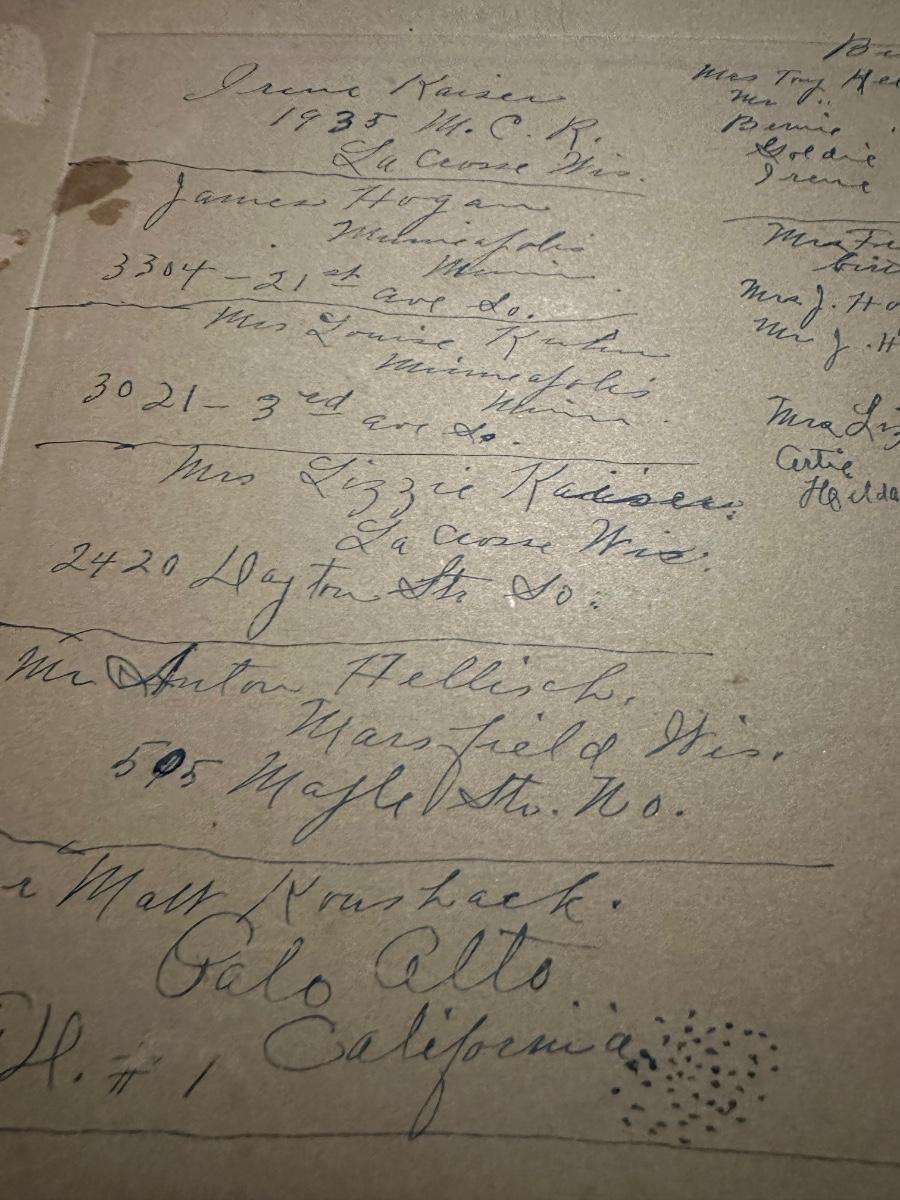 Irene Kaiser
1935 M. C. R.
La Crosse Wis.
James Hogan
Minneapolis
Minn.
3304 - 21st ave So.
Mrs Louise Kuhn
Minneapolis
Minn.
3021 - 3rd ave So.
Mrs Lizzie Kaiser.
La Crosse Wis.
2420 Dayton Str So.
Mr Anton Hellisch.
Marsfield Wis.
505 Maple Str. No.
Matt Koushack.
Palo Alto
California
# 1
Mrs Tony
Mr "
Bernie
Goldie
Irene
Mrs
Mrs J. Ho
Mr J. H
Mrs Liz
Artie